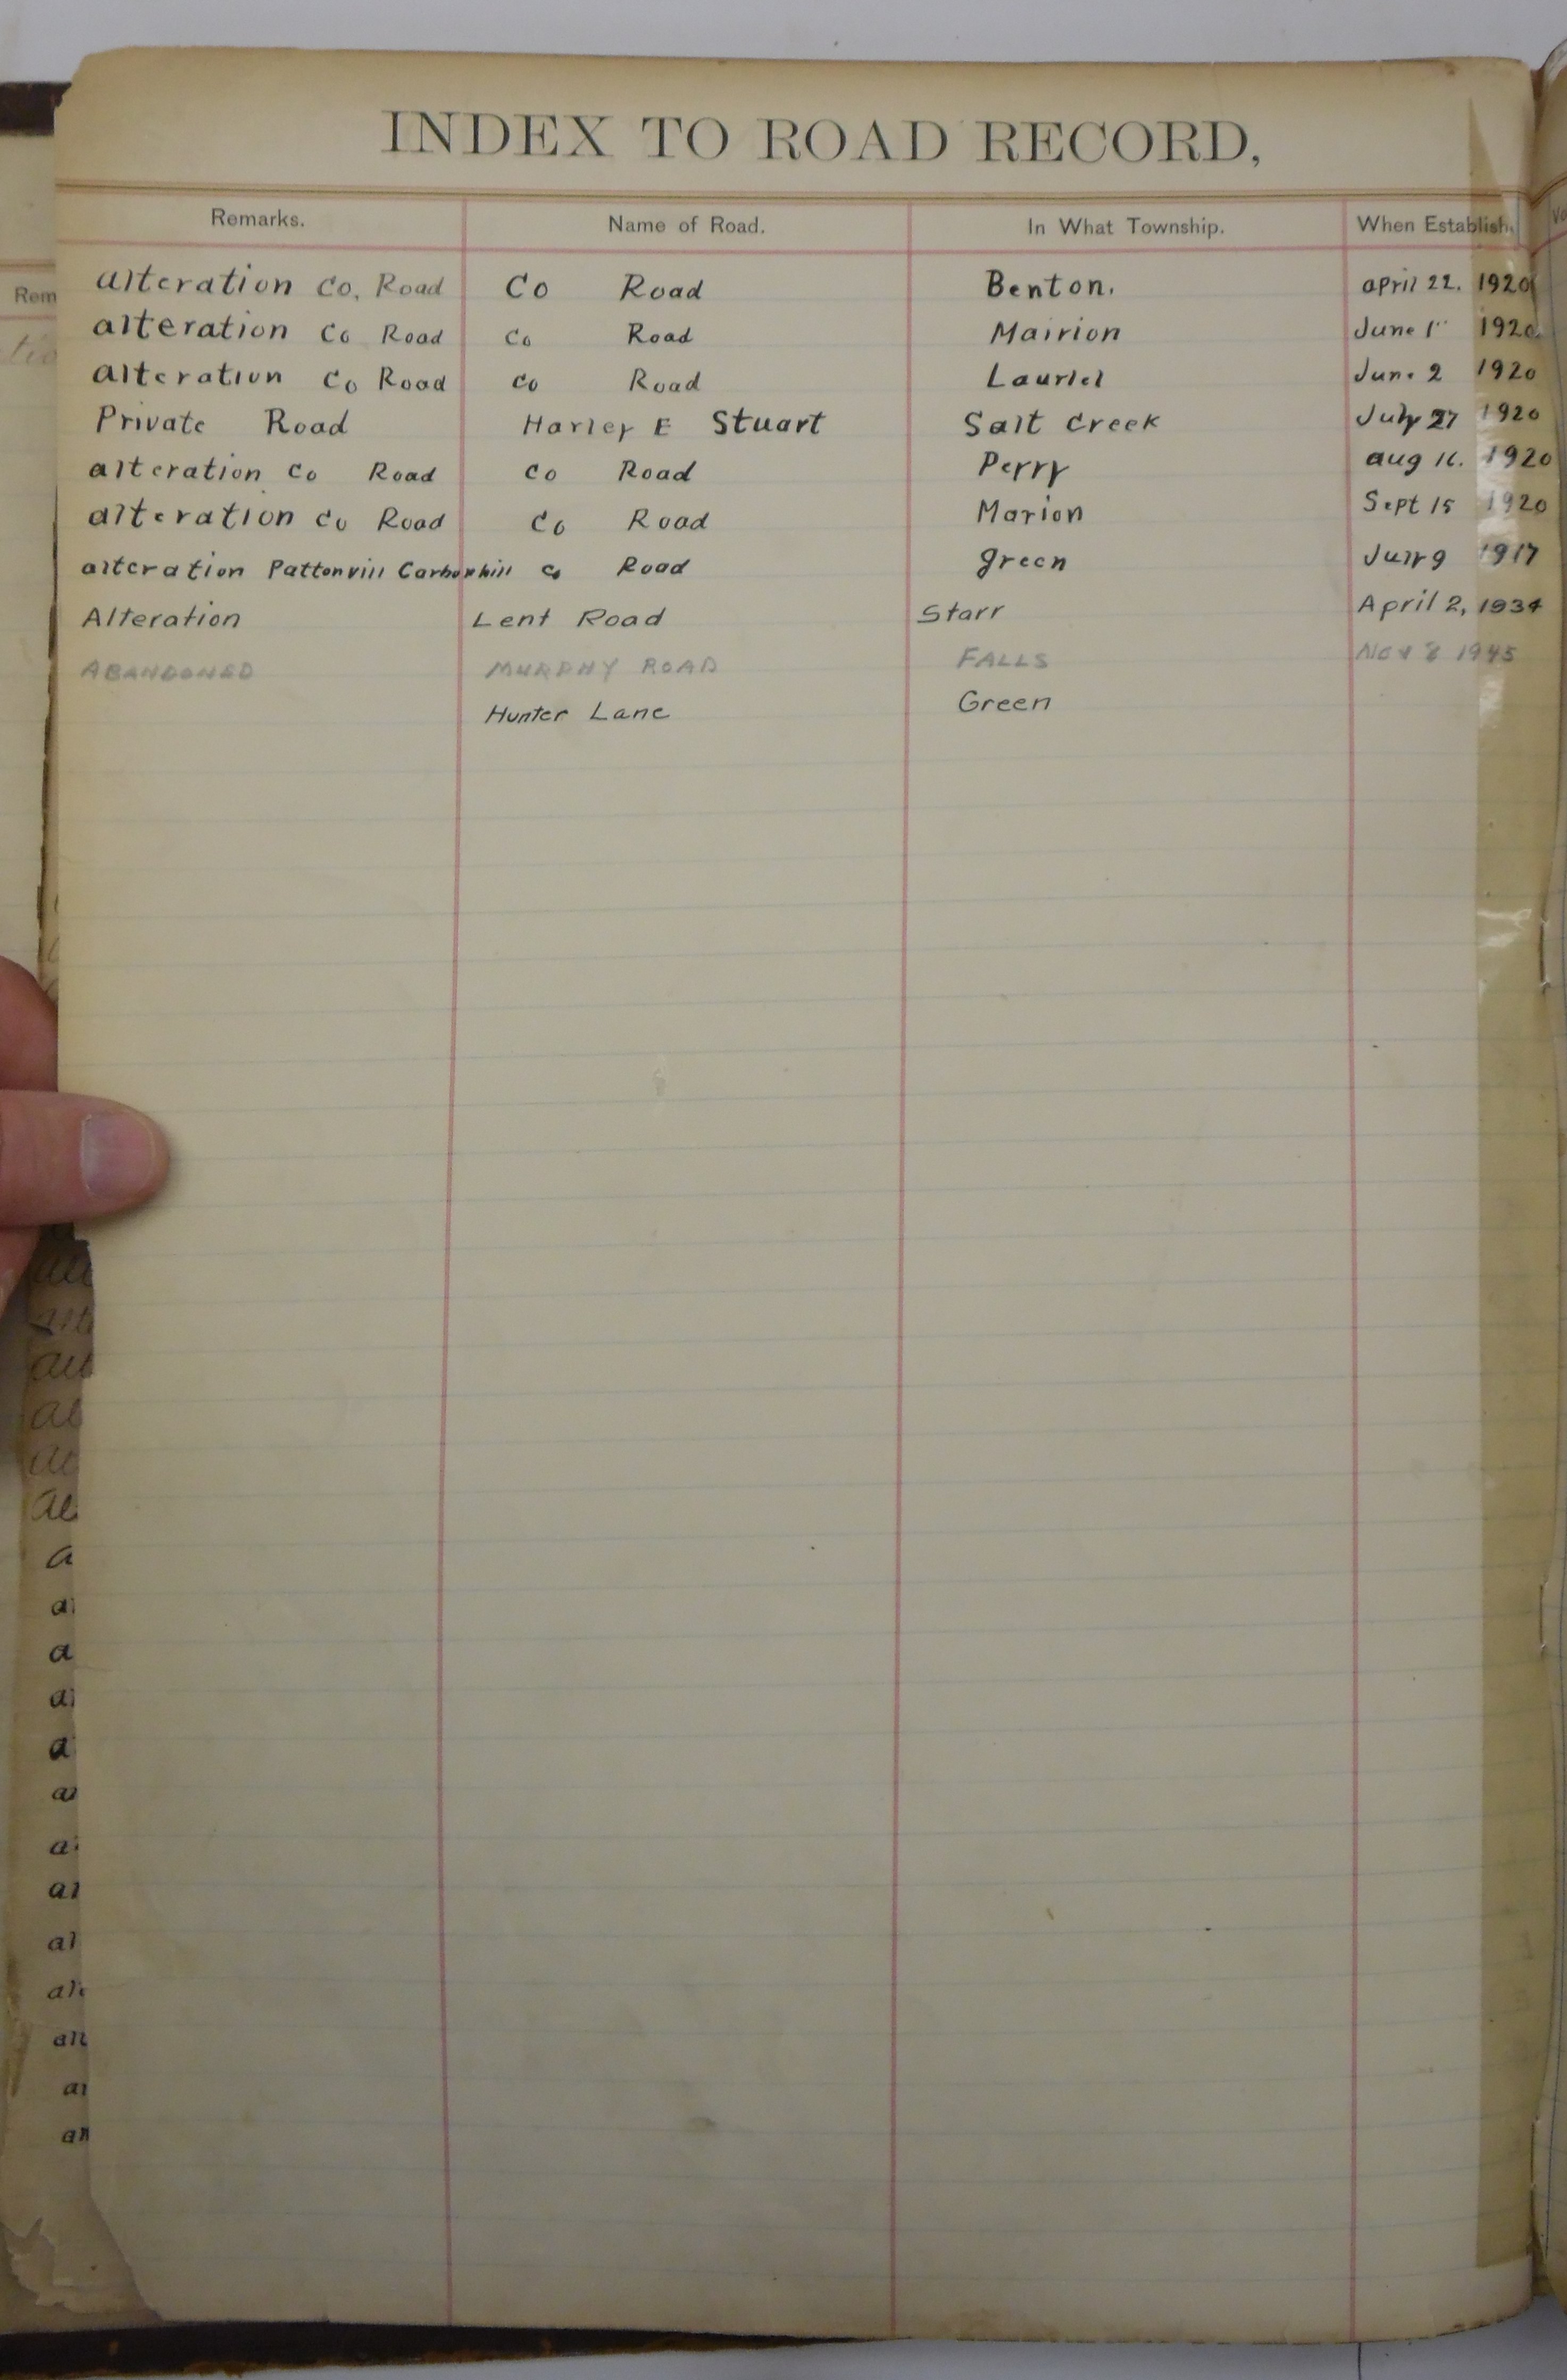 INDEX TO ROAD RECORD,
Remarks. Name of Road. In What Township. When Establish.
alteration Co. Road Co Road Benton. april 22. 1920
alteration Co Road Co Road Mairion June 1" 1920
alteration Co Road Co Road Lauriel June 2 1920
Private Road Harley E Stuart Salt Creek July 27 1920
alteration Co Road Co Road Perry aug 16. 1920
alteration Co Road Co Road Marion Sept 15 1920
alteration Pattonvill Carbonhill Co Road green July 9 1917
Alteration Lent Road Starr April 2, 1934
ABANDONED MURPHY ROAD FALLS Nov 8 1945
Hunter Lane Green